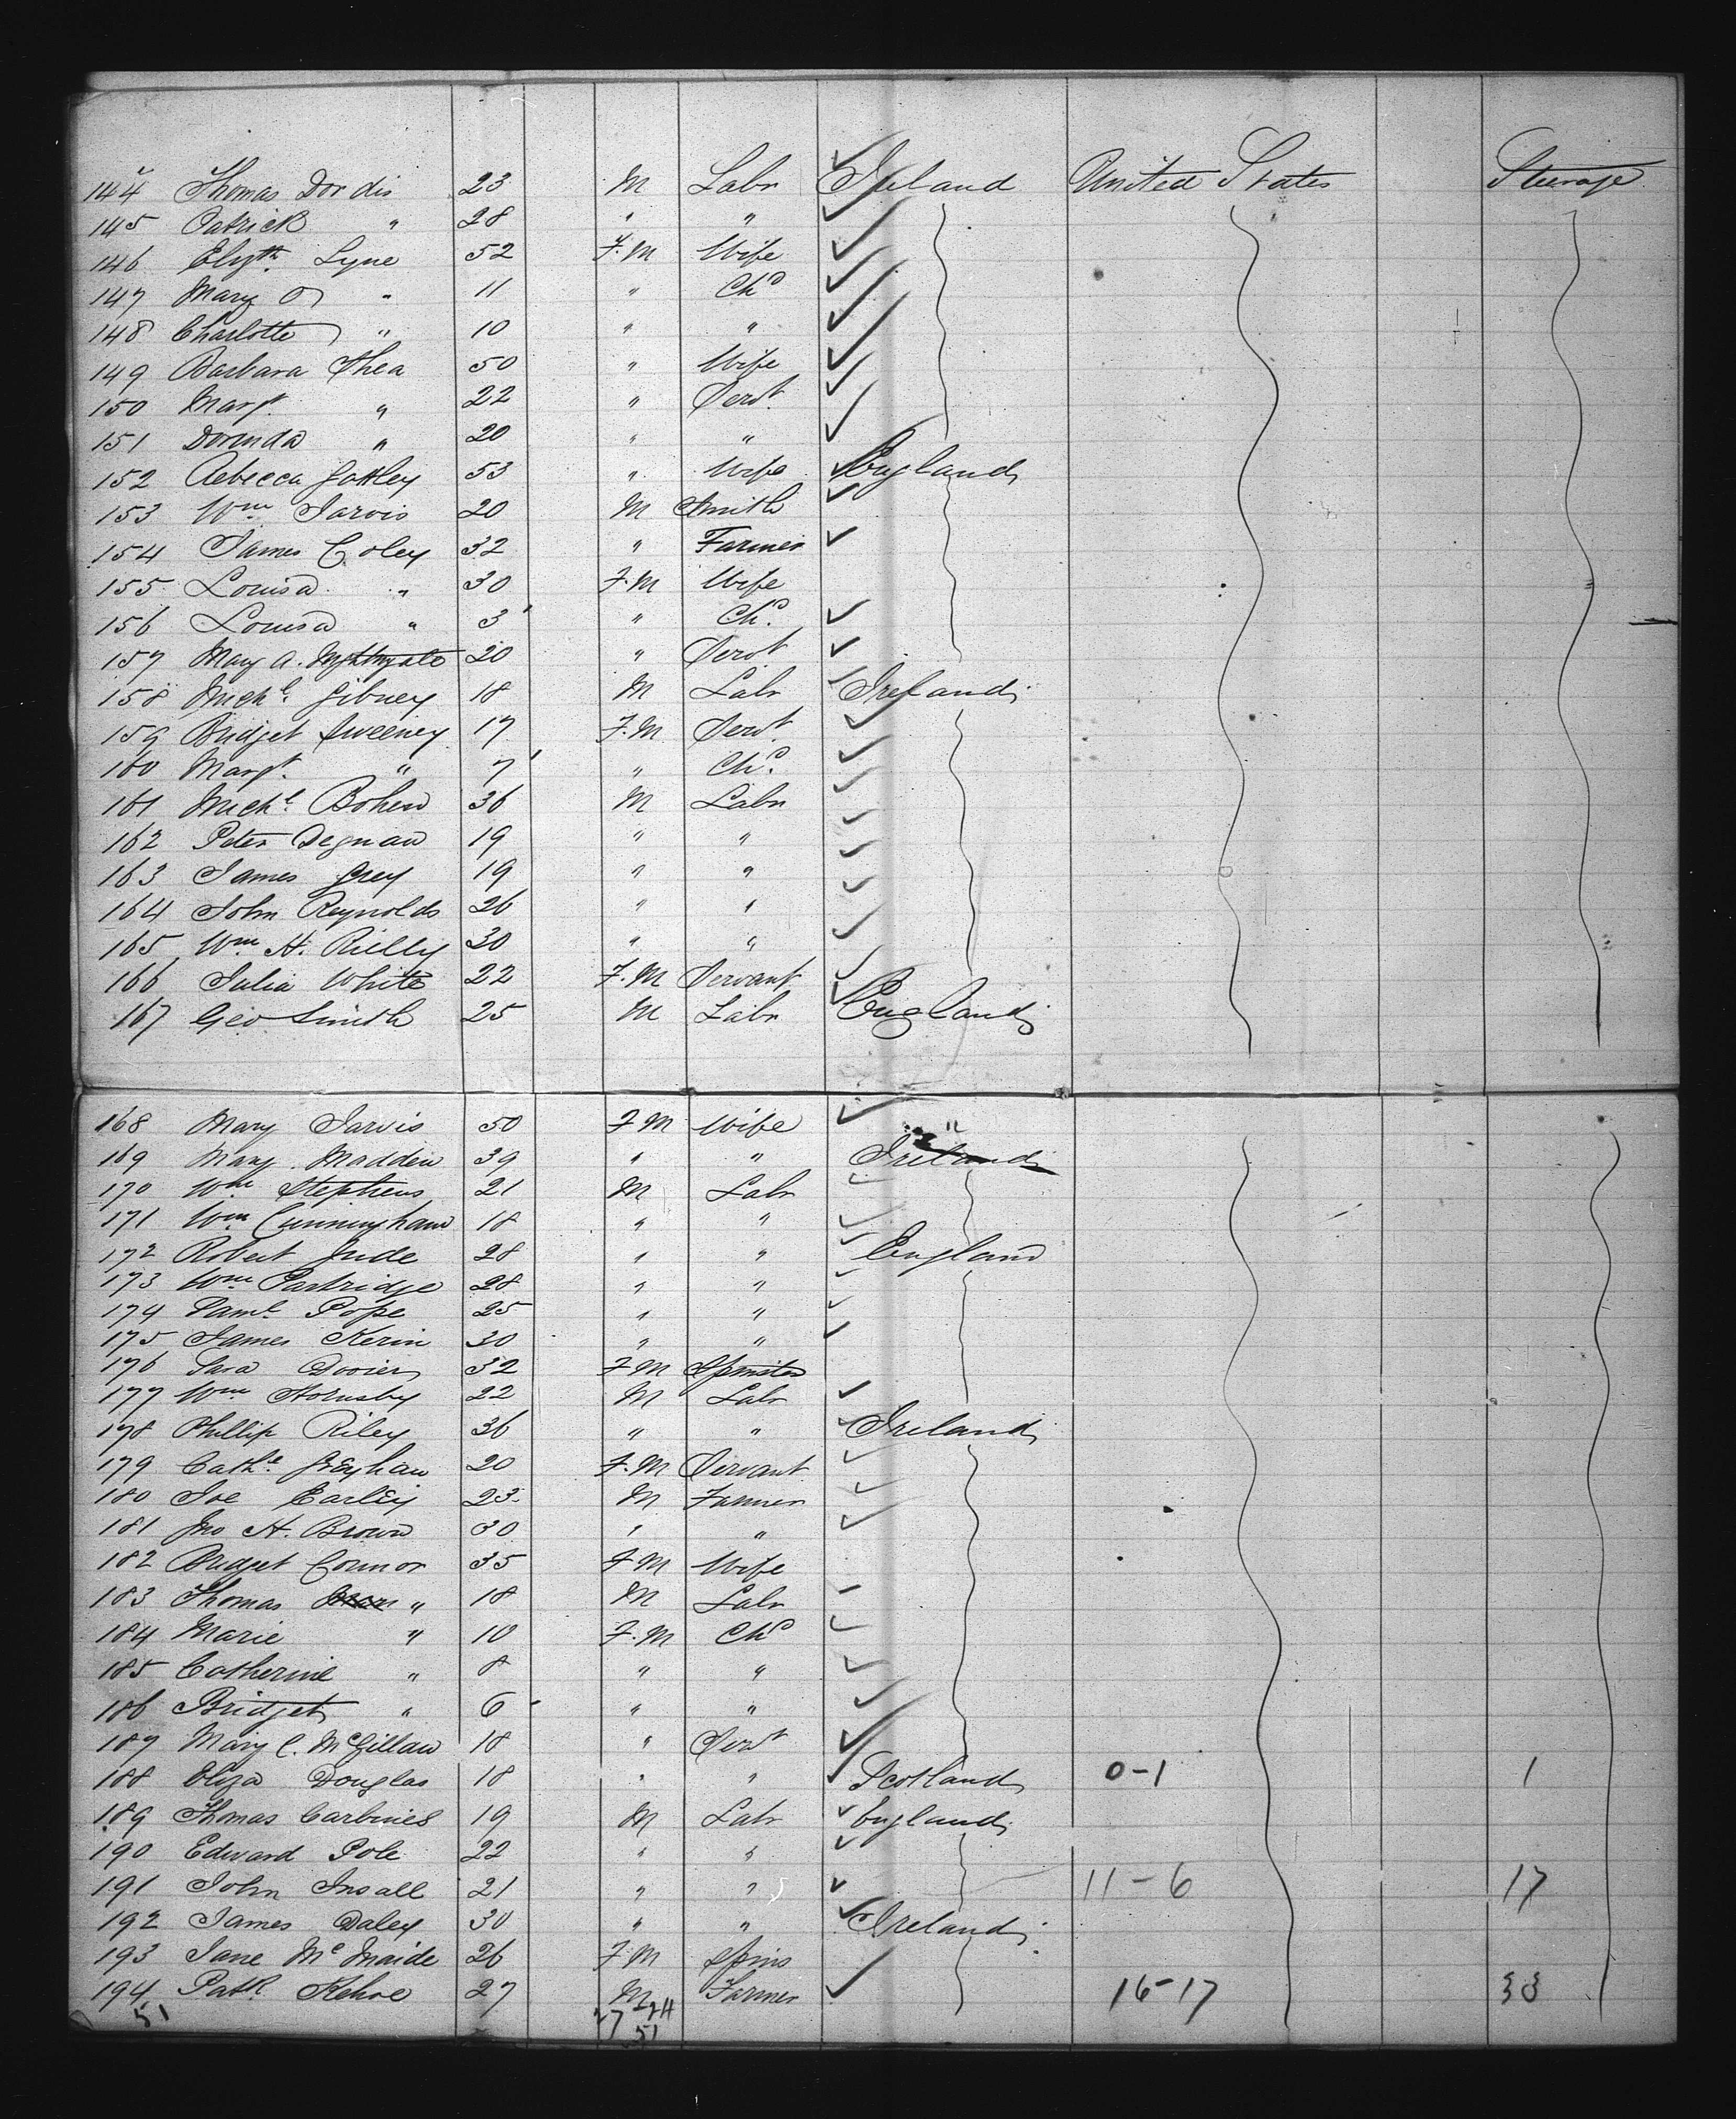 144 Thomas Dordis 23 M Labr Ireland United States Steerage
145 Patrick " 28 " "
146 Elizth. Lyne 52 F.M Wife
147 Mary " 11 " Chd
148 Charlotte " 10 " "
149 Barbara Shea 50 " Wife
150 Margt. " 22 " Servt.
151 Dorinda " 20 " "
152 Rebecca Gatley 53 " Wife England
153 Wm Jarvis 20 M Smith
154 James Coley 32 " Farmer
155 Louisa " 30 F.M Wife
156 Louisa " 3 " Chd.
157 Mary A. Nightngale 20 " Servt
158 Michl. Gibney 18 M Labr Ireland
159 Bridget Sweeney 17 F.M Servt.
160 Margt. " 7 " Chd.
161 Michl. Bohen 36 M Labr
162 Peter Degnan 19 " "
163 James Grey 19 " "
164 John Reynolds 26 " "
165 Wm H. Rielly 30 " "
166 Julia White 22 F.M Servant
167 Geo Smith 25 M Labr England
168 Mary Jarvis 50 F M Wife "
169 Mary Madden 39 " " Ireland
170 Wm Stephens 21 M Labr
171 Wm Cunningham 18 " "
172 Robert Jude 28 " " England
173 Wm Partridge 28 " "
174 Saml. Pope 25 " "
175 James Kerin 30 " "
176 Sara 32 F M Spinster
177 Wm Hornsby 22 M Labr
178 Phillip Riley 36 " " Ireland
179 Cathe. 20 F.M Servant
180 Joe Earley 23 M Farmer
181 Jno H. Brown 30 " "
182 Bridget Connor 35 F M Wife
183 Thomas " 18 M Labr
184 Marie " 10 F.M Chd
185 Catherine " 8 " "
186 Bridget " 6 " "
187 Mary C. McGillan 18 " Servt
188 Eliza Douglas 18 " " Scotland 0-1 1
189 Thomas Carbines 19 M Labr England
190 Edward Pole 22 " "
191 John Insall 21 " " 11-6 17
192 James Daley 30 " " Ireland
193 Jane McMaide 26 F M Spins
194 Patk Kehoe 27 M Farmer 16-17 33
51 27 24
51